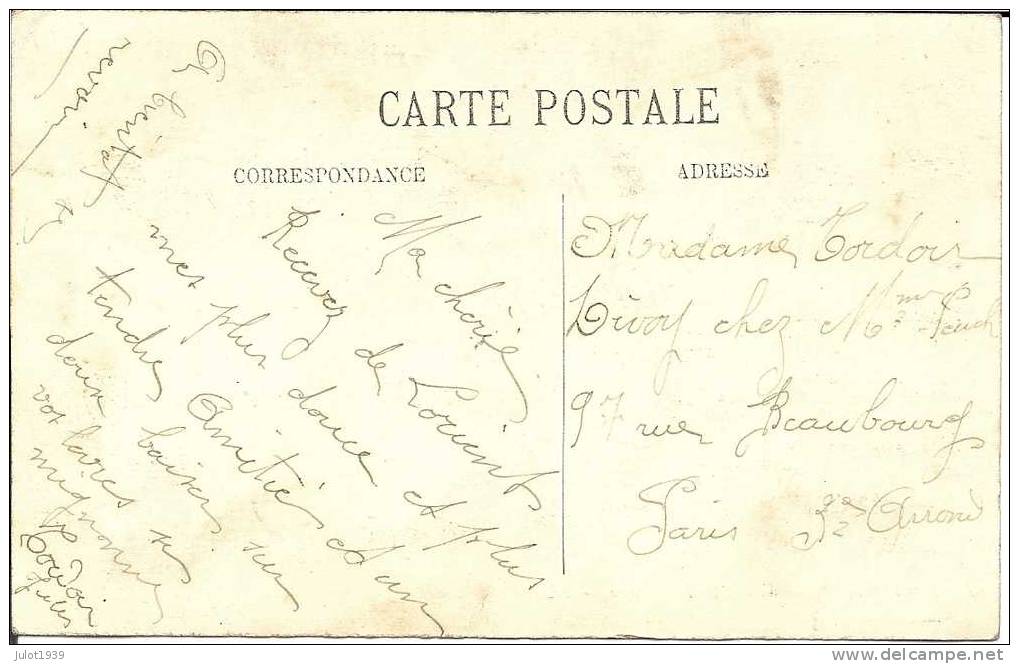 CARTE POSTALE
CORRESPONDANCE
ADRESSE
Ma chérie
Recevez de Lorient
mes plus douce et plus
tendre Amitié et un
deux baiser sur
vos lavres si
mignonne
Tordoir
Jules
A bientot
revoir
Madame Tordoir
Livoy chez Mme
97 rue Beaubourg
Paris Arrond
julot1939
www.delcampe.net